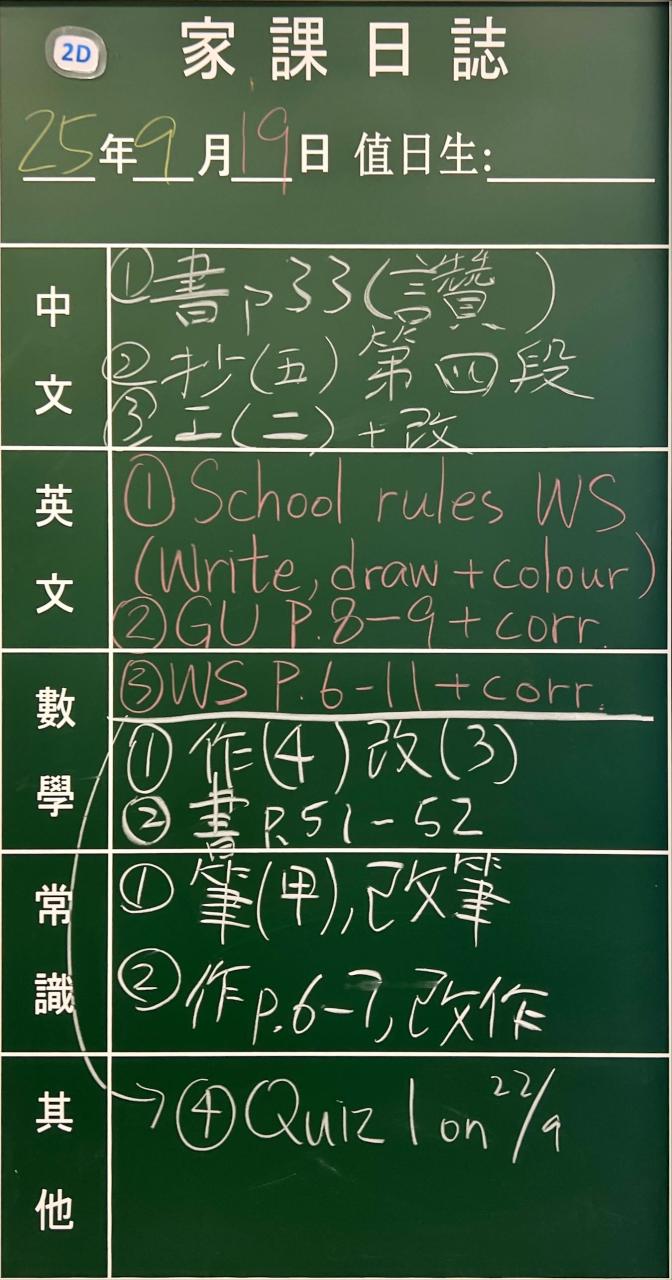 2D
家課日誌
25年9月19日 值日生:
中文
①書p33(讚)
②抄(五)第四段
③工(二)+改
英文
①School rules WS
(Write, draw + colour)
②GU P.8-9 + corr.
③WS P.6-11 + corr.
數學
①作(4)改(3)
②書P.51-52
常識
①筆(甲),改筆
②作p.6-7,改作
其他
→④Quiz 1 on 22/9